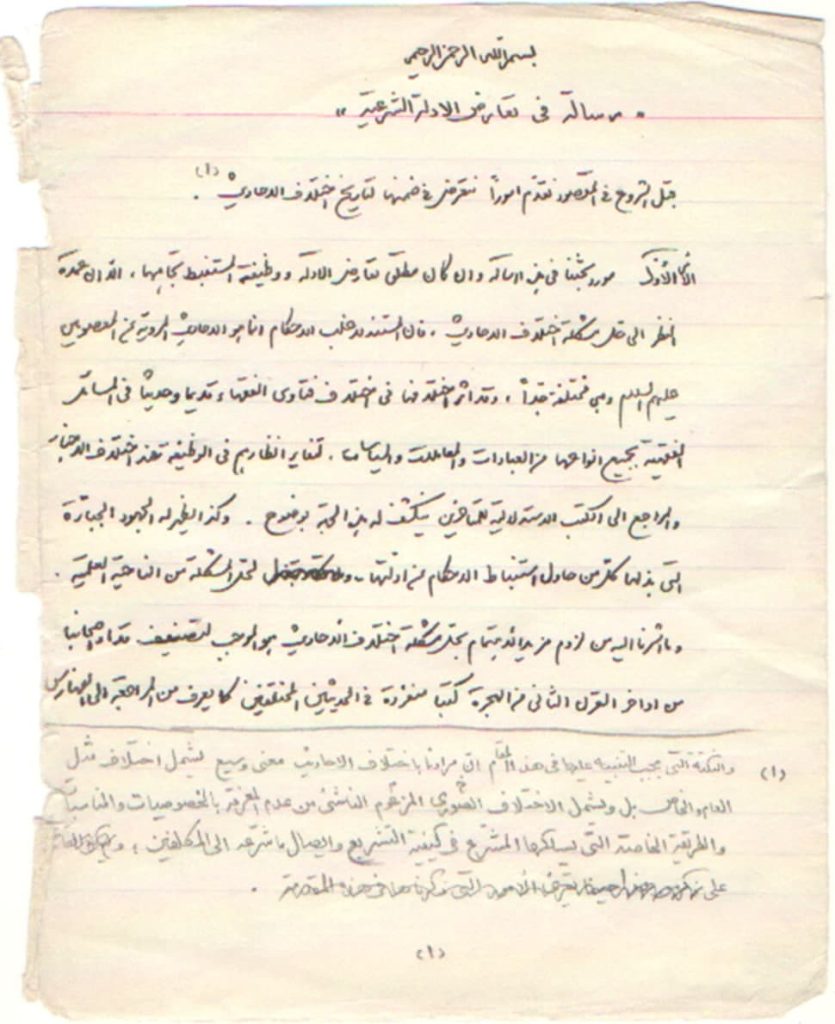 بسم الله الرحمن الرحيم
" رسالة في تعارض الادلة الشرعية "
قبل الشروع في المقصود نقدّم اموراً نتعرض في ضمنها لتاريخ اختلاف الاحاديث (١) .
الأمر الأول مورد بحثنا في هذه الرسالة وان كان مطلق تعارض الادلة ووظيفة المستنبط تجاهها ، الا ان عمدة
النظر الى حل مشكلة اختلاف الاحاديث ، فان المستند لاغلب الاحكام انما هو الاحاديث المروية عن المعصومين
عليهم السلام وهي مختلفة جداً ، وقد اثر اختلافها في اختلاف فتاوى الفقهاء قديما وحديثا في المسائل
الفقهية بجميع انواعها من العبادات والمعاملات والسياسات ، لتغاير انظارهم في الوظيفة عند اختلاف الاخبار
والمراجع الى الكتب الاستدلالية للمتأخرين ينكشف له هذه الجهة بوضوح . وكذا يظهر له الجهود الجبّارة
التي بذلها كل من حاول استنباط الاحكام من ادلتها لحل المشكلة من الناحية العلمية .
وما اشرنا اليه من لزوم مزيد الاهتمام بحل مشكلة اختلاف الاحاديث هو الموجب لتصنيف قدماء اصحابنا
من اواخر القرن الثاني من الهجرة كتبا منفردة في الحديثين المختلفين كما يعرف من المراجعة الى الفهارس
(١) والنكتة التي يجب التنبيه عليها في هذا المقام ان مرادنا باختلاف الاحاديث معنى وسيع يشمل اختلاف مثل
العام والخاص بل ويشمل الاختلاف الصوري المتوهم الناشئ من عدم المعرفة بالخصوصيات والمناسبات
والطريقة الخاصة التي يسلكها المشرّع في كيفية التشريع وايصال ما شرّعه الى المكلفين ،
على الامور التي ذكرناها في هذه المقدمة .
(١)